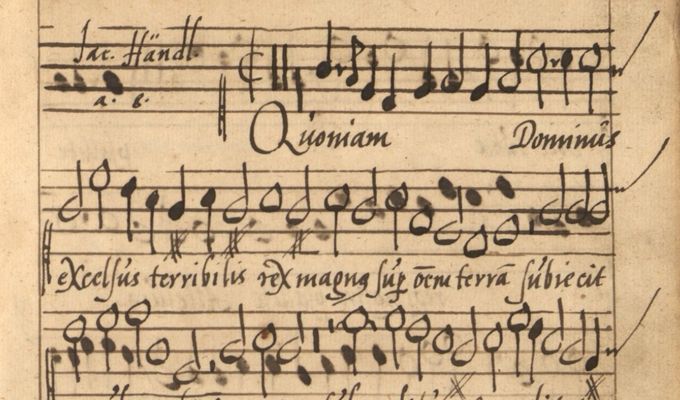 Jac. Händl
a. 8.
Quoniam Dominus
excelsus terribilis rex magnꝯ suꝑ ōem terrā subiecit